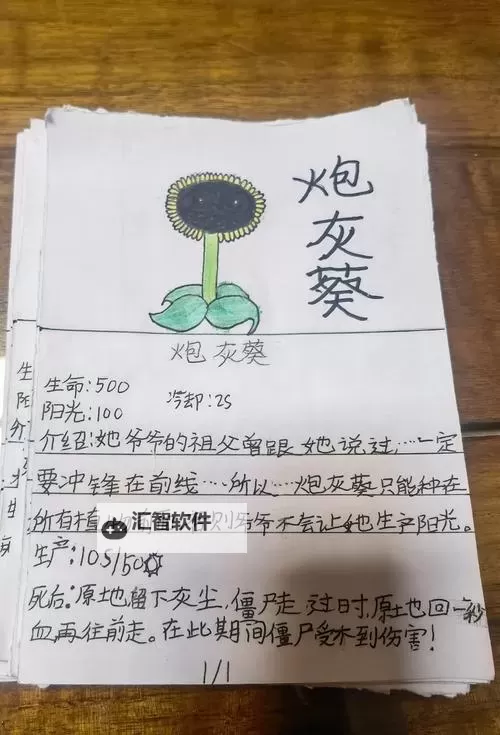 炮
灰
葵
炮灰葵
生命:500
阳光:100
冷却:2S
介绍:她爷爷的祖父曾跟她说过,……一定
要冲锋在前线……所以……炮灰葵只能种在
所有植 则爷爷不会让她生产阳光。
汇智软件
生产:10S/50
死后:原地留下灰尘,僵尸走过时,原土也回一秒
血再往前走。在此期间僵尸受不到伤害!
1/1
生
阳